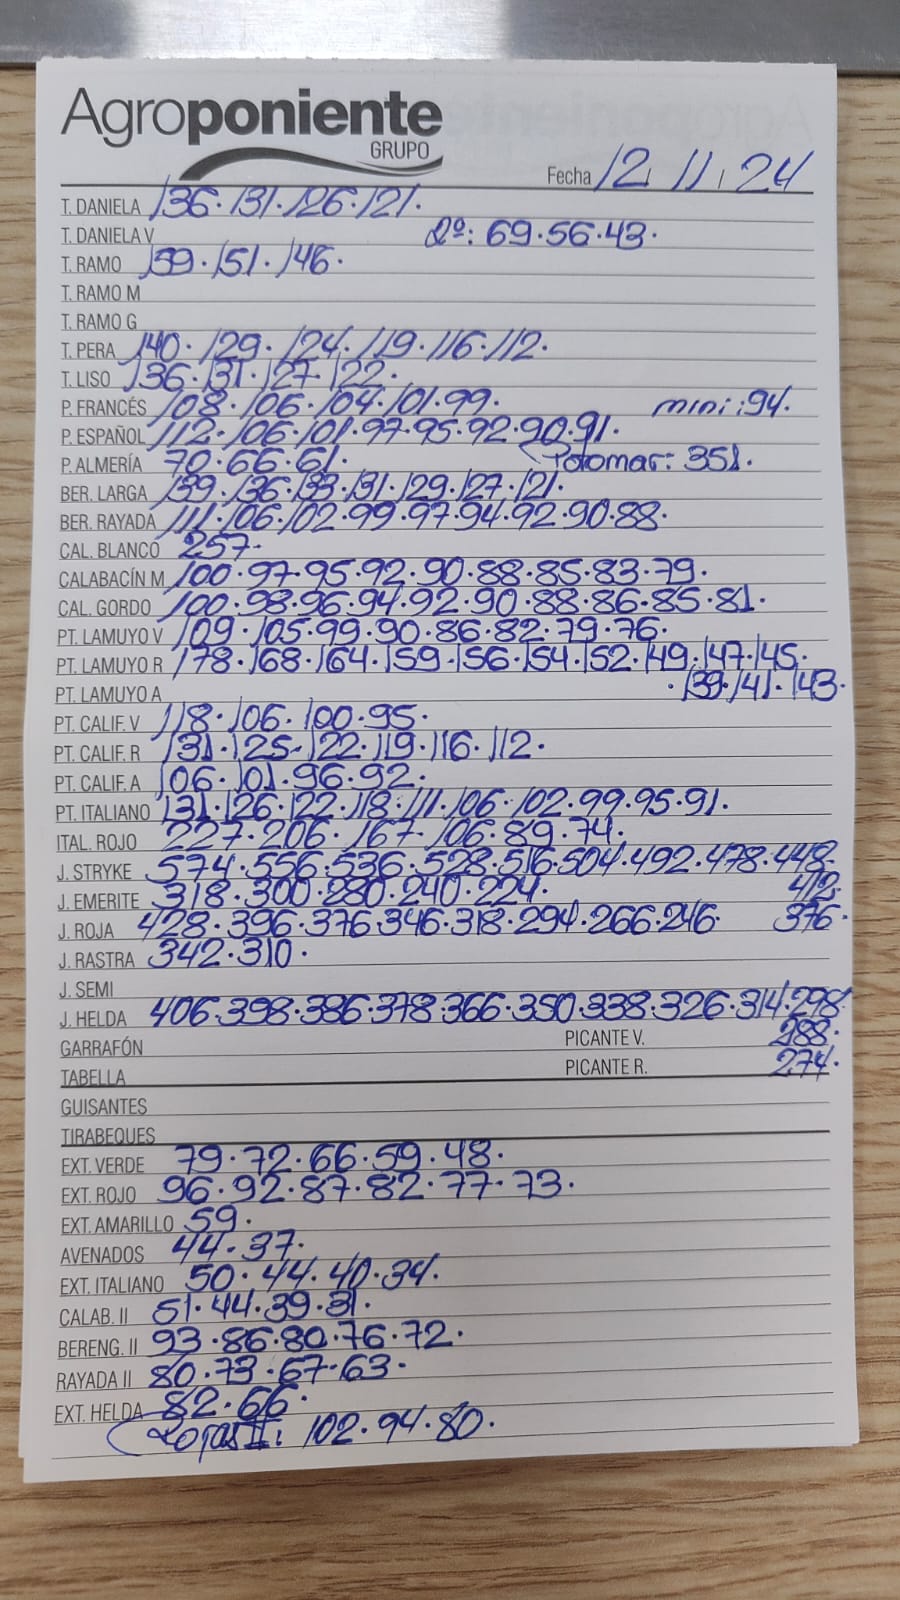 Agroponiente
GRUPO
Fecha 12 11 24
T. DANIELA 136. 131. 126. 121.
T. DANELA V 2º: 69.56.43.
T. RAMO 159. 151. 146.
T. RAMO M
T. RAMO G
T. PERA 140. 129. 124. 119. 116. 112.
T. LISO 136. 131. 127. 122.
P. FRANCÉS 108. 106. 104. 101. 99. mini: 94.
P. ESPAÑOL 112. 106. 101. 97. 95. 92. 90. 91.
P. ALMERÍA 70. 66. 61. (Potomar: 351.
BER. LARGA 139. 136. 133. 131. 129. 127. 121.
BER. RAYADA 111. 106. 102. 99. 97. 94. 92. 90. 88.
CAL. BLANCO 257.
CALABACÍN M 100. 97. 95. 92. 90. 88. 85. 83. 79.
CAL. GORDO 100. 98. 96. 94. 92. 90. 88. 86. 85. 81.
PT. LAMUYO V 109. 105. 99. 90. 86. 82. 79. 76.
PT. LAMUYO R 178. 168. 164. 159. 156. 154. 152. 149. 147. 145.
PT. LAMUYO A . 139. 141. 143.
PT. CALIF. V 118. 106. 100. 95.
PT. CALIF. R 131. 125. 122. 119. 116. 112.
PT. CALIF. A 106. 101. 96. 92.
PT. ITALIANO 131. 126. 122. 118. 111. 106. 102. 99. 95. 91.
ITAL. ROJO 227. 206. 167. 106. 89. 74.
J. STRYKE 574. 556. 536. 528. 516. 504. 492. 478. 448.
J. EMERITE 318. 300. 280. 240. 224. 412.
J. ROJA 428. 396. 376. 346. 318. 294. 266. 246. 376.
J. RASTRA 342. 310.
J. SEMI
J. HELDA 406. 398. 386. 378. 366. 350. 338. 326. 314. 298.
GARRAFÓN PICANTE V. 288.
TABELLA PICANTE R. 274.
GUISANTES
TIRABEQUES
EXT. VERDE 79. 72. 66. 59. 48.
EXT. ROJO 96. 92. 87. 82. 77. 73.
EXT. AMARILLO 59.
AVENADOS 44. 37.
EXT. ITALIANO 50. 44. 40. 34.
CALAB. II 51. 44. 39. 31.
BERENG. II 93. 86. 80. 76. 72.
RAYADA II 80. 73. 67. 63.
EXT. HELDA 82. 66.
(Rojas II: 102. 94. 80.